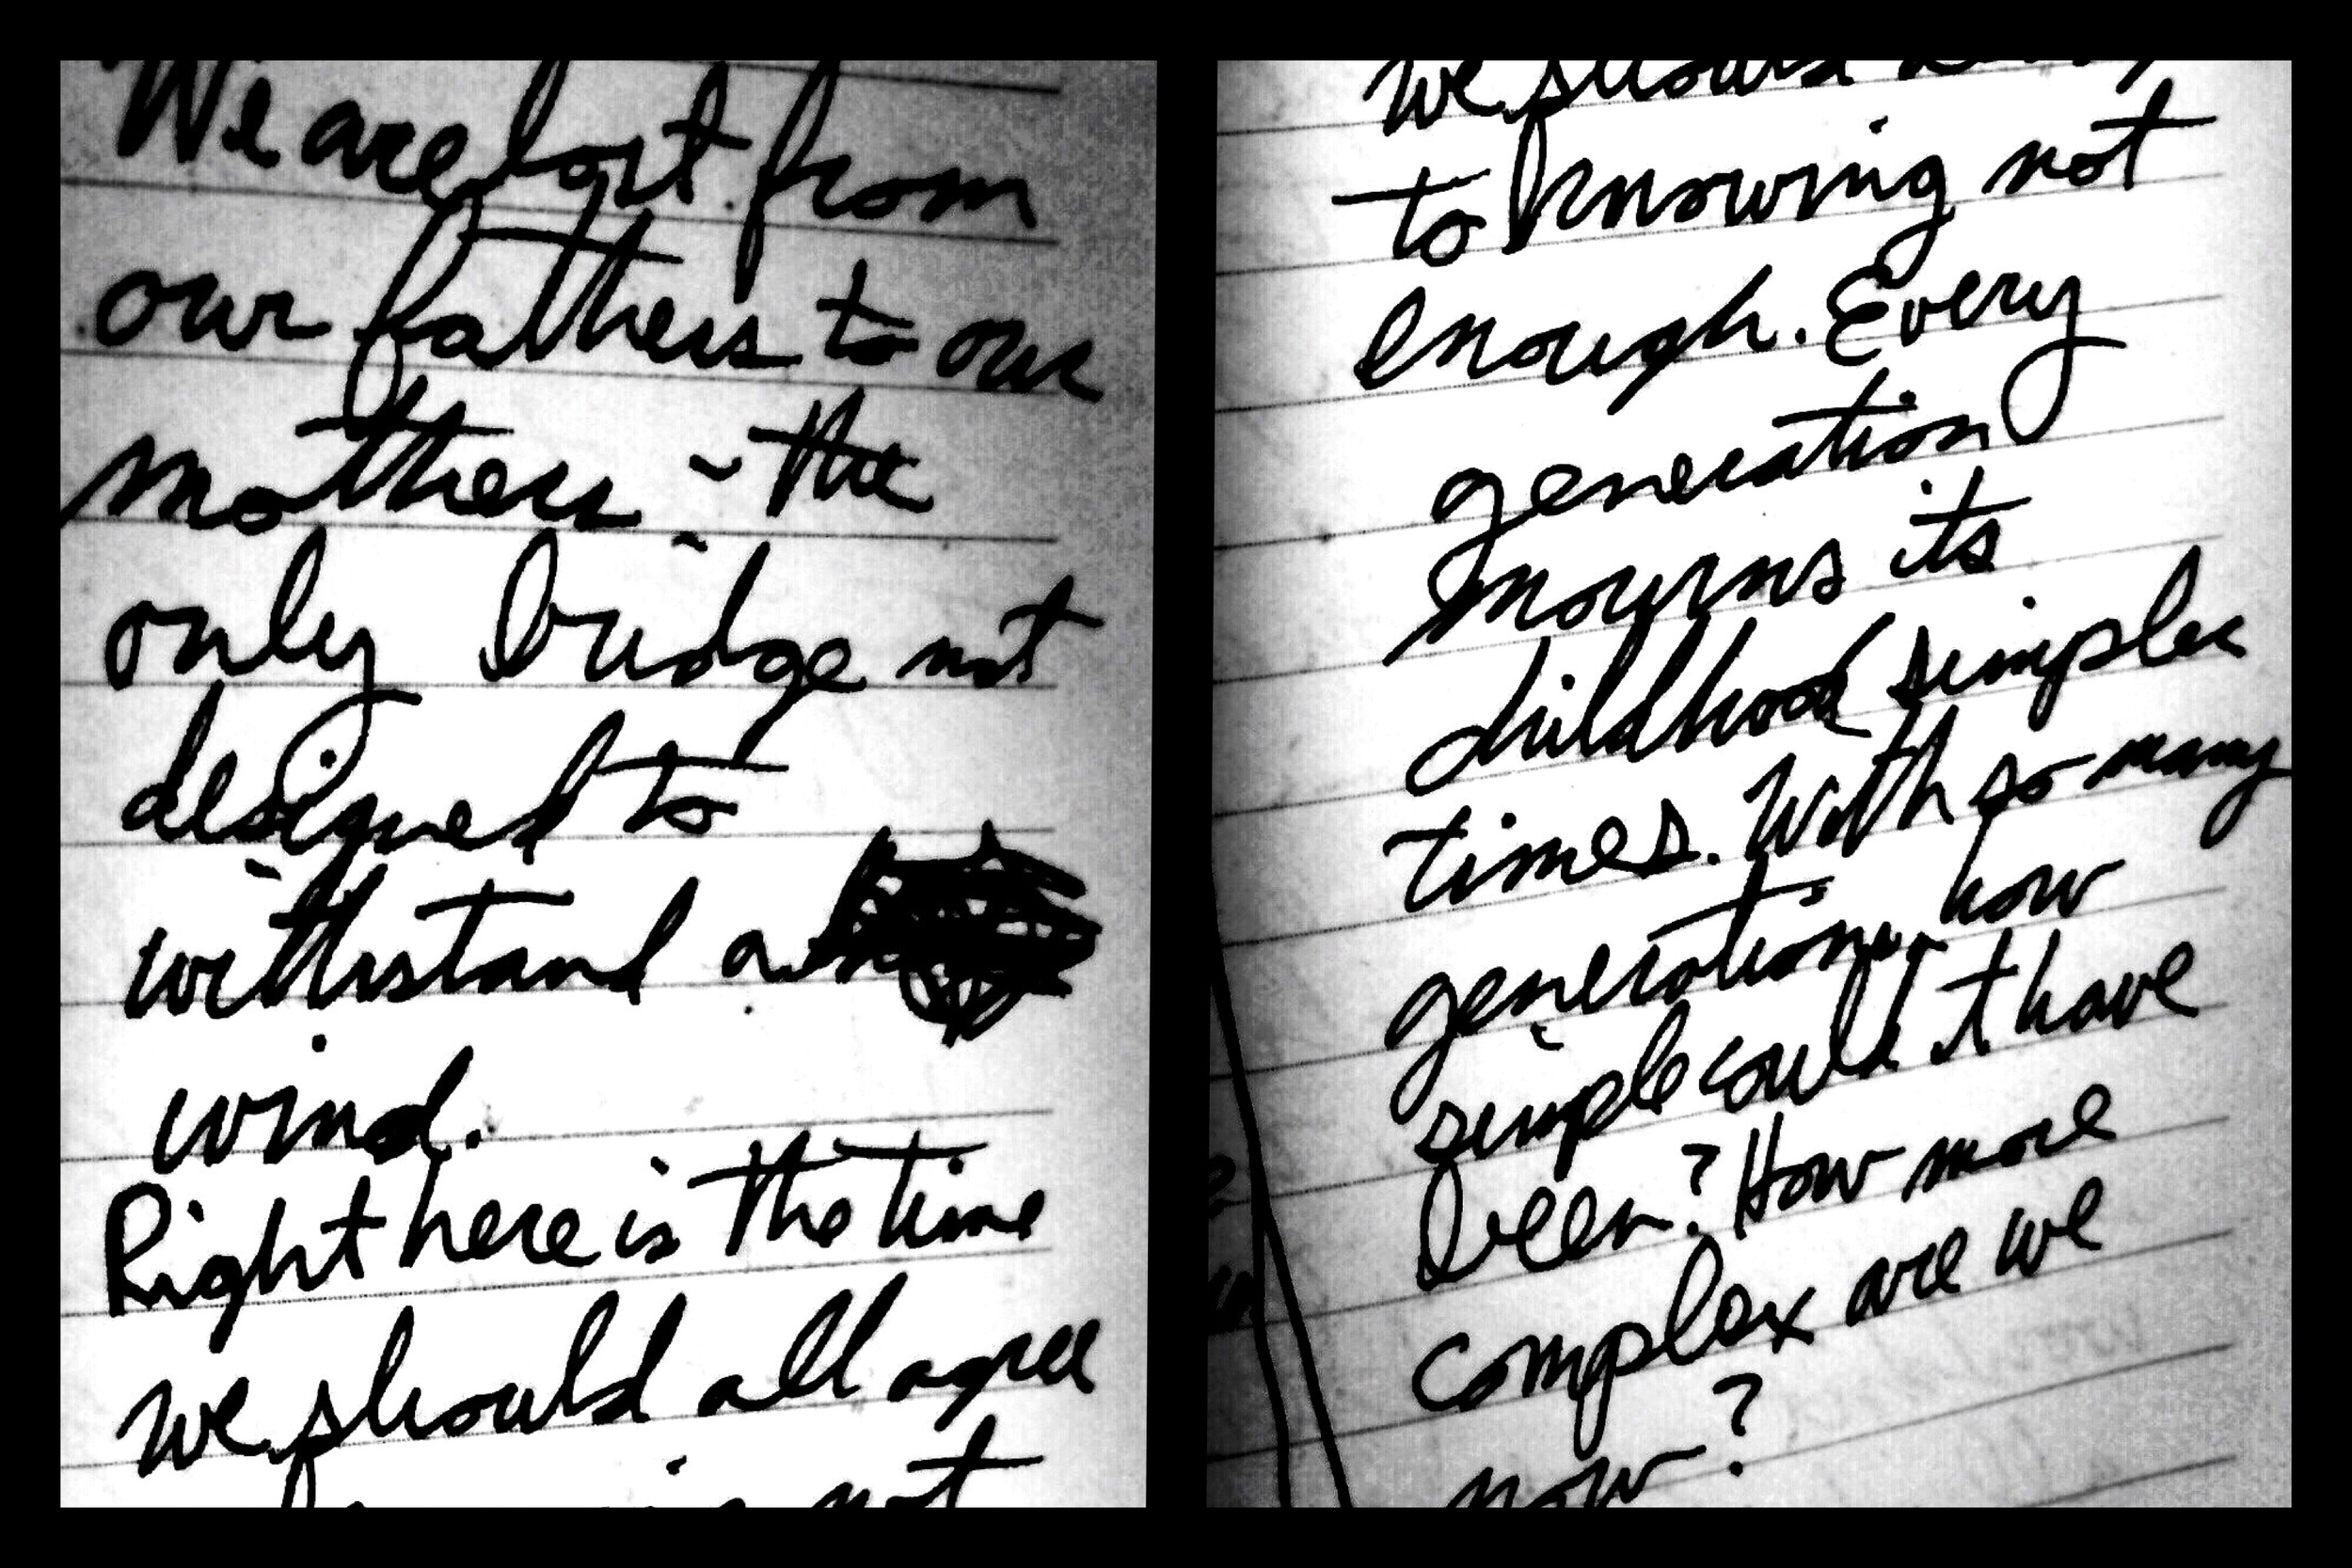 We are lost from
our fathers to our
mothers - the
only bridge not
designed to
withstand a
wind.
Right here is the time
we should all agree
not
we should
to knowing not
enough. Every
generation
mourns its
childhood simpler
times. With so many
generations, how
simple could it have
been? How more
complex are we
now?